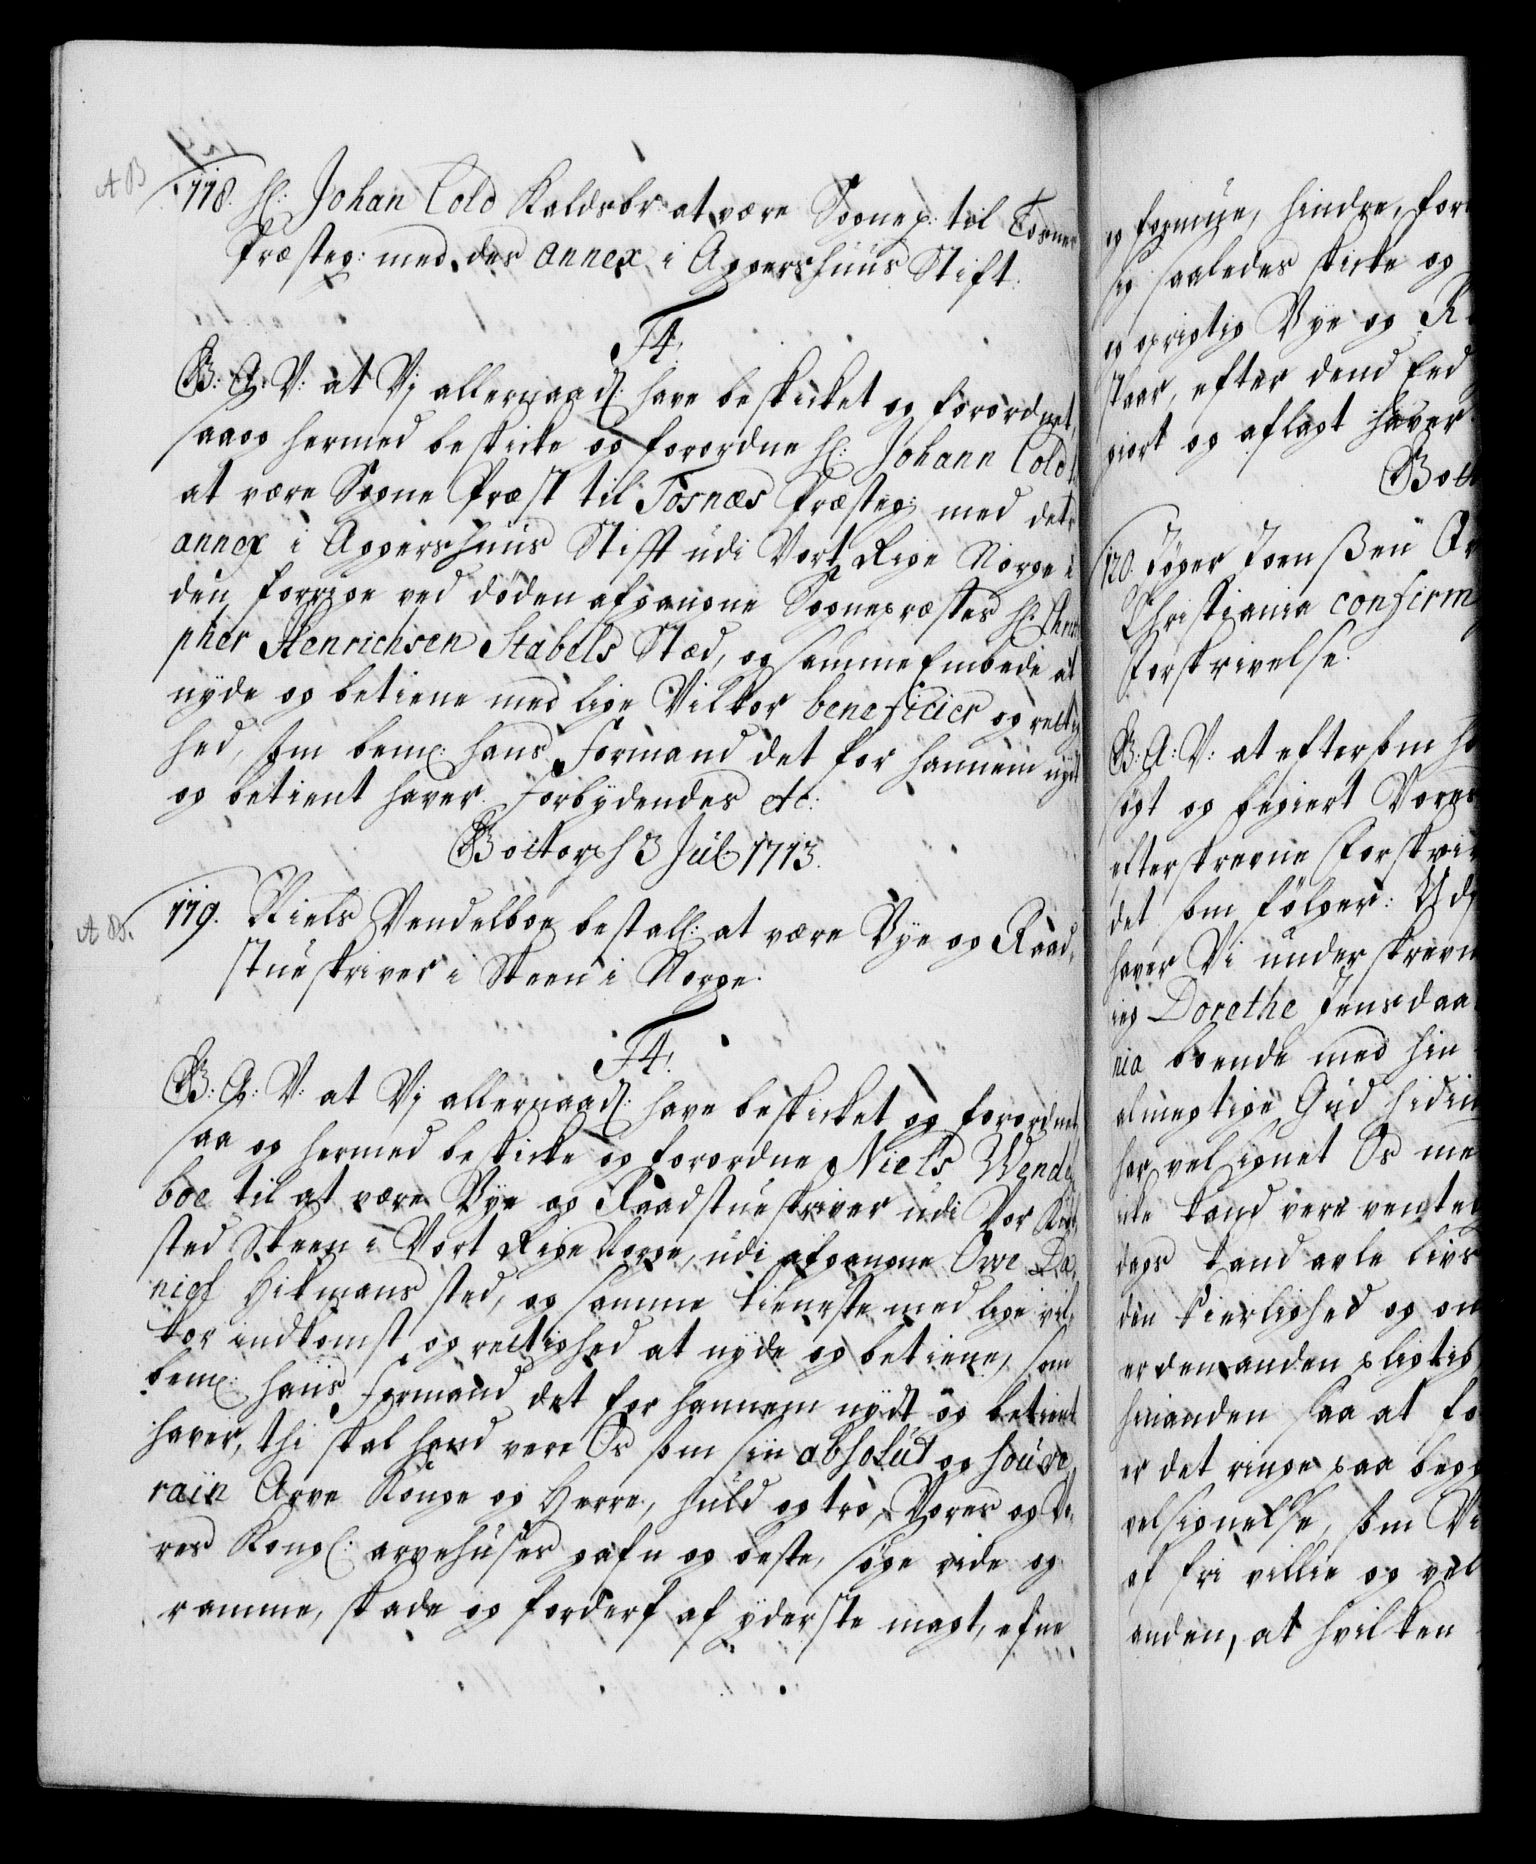 A B
118. Hr: Johan Cold Kaldsbr: at være Sognepr: til Torsnes
Præsteg: med des annex i Aggershuus Stift.
F4.
G: A: V: at Vj allernaadl: have beskicket og forordnet,
saa og hermed beskicke og forordne Hr: Johann Cold
at være Sogne Præst til Torsnæs Præsteg: med dets
annex i Aggershuus Stifft udi Vort Rige Norge i
den forrige ved döden afgangne Sognepræstes Hr: Christo
pher Henrichsen Stabels Stæd, og samme Embede at
nyde og betiene med lige Vilkor beneficier og rettig
hed, som bemte: hans Formand det for hannem nydt
og betient haver. Forbydendes etc:
Gottorp 3 Jul: 1713.
A B.
119. Niels Vendelboe bestall: at være Bye og Raad,
stueskriver i Skeen i Norge.
F4.
G: A: V: at Vj allernaadl: have beskicket og forordnet
saa og hermed beskicke og forordne Niels Wendel
boe til at være Bye og Raadstueskriver udi Vor Kiøb
sted Skeen i Vort Rige Norge, udi afgangne Ove Da,
niel Hitmans sted, og samme tieneste med lige vil,
kor indkomst og rettighed at nyde og betiene, som
bemte: hans Formand det for hannem nydt og betient
haver, thi skal hand vere Os som siin absolut og souve,
rain Arve Konge og Herre, huld og tro, Vores og Vo,
res Kongl: arvehuses gafn og beste, söge vide og
ramme, skade og forderf af yderste magt, efne
og formue, hindre, for
sig saaledes skicke og
og oprigtig Bye og R
staar, efter dend Eed
giort og aflagt haver
Gott
120. Joenßen
Christiania confirm
Forskrivelse.
G: A: V: at eftersom
sögt og begiert Vores
efterskrevne Forskri
det som fölger:
haver Vi underskrevn
ieg Dorethe Jensdaa
nia boende med hin
almegtige Gud hidin
har velsignet Os me
icke kand vere vente
dags kand avle livs
den kierlighed og om
er den anden pligtig
hinanden saa at fo
er det ringe saa beg
velsignelse, som Vi
af fri villie og vel
anden, at hvilken